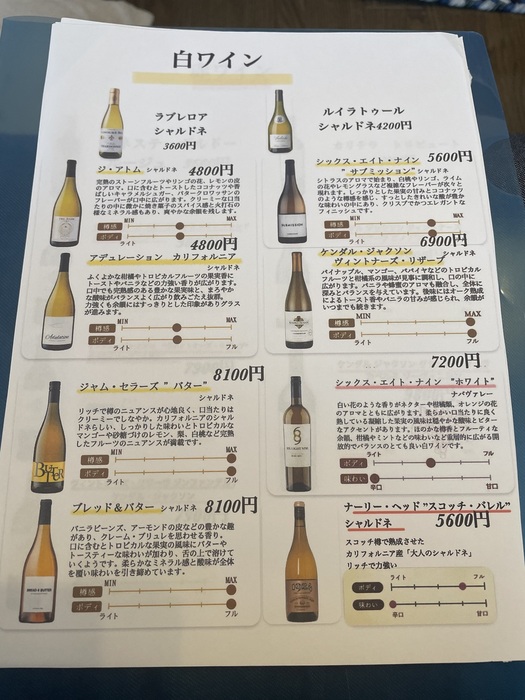 白ワイン
ラブレロア
シャルドネ
3600円
ルイラトゥール
シャルドネ4200円
ジ・アトム シャルドネ 4800円
完熟のストーンフルーツやリンゴの花、レモンの皮
のアロマ。口に含むとトーストしたココナッツや香
ばしいキャラメルシュガー、バタークロワッサンの
フレーバーが口中に広がります。クリーミーな口当
たりの中に微かに焼き菓子のスパイス感と火打石の
様なミネラル感もあり、爽やかな余韻を残します。
MIN MAX
樽感
ボディ
ライト フル
シックス・エイト・ナイン 5600円
"サブミッション" シャルドネ
シトラスのアロマで始まり、白桃やリンゴ、ライム
の花やレモングラスなど複雑なフレーバーが次々と
現れます。しっかりとした果実の甘みとココナッツ
のような樽感を感じ、すっとしたきれいな酸が豊か
な味わいの中にあり、クリスプでかつエレガントな
フィニッシュです。
MIN MAX
樽感
ボディ
ライト フル
4800円
アデュレーション カリフォルニア
シャルドネ
ふくよかな柑橘やトロピカルフルーツの果実香に
トーストやバニラなどの力強い香りが広がります。
口中でも完熟感のある豊かな果実味と、まろやか
な酸味がバランスよく広がり飲みごたえ抜群。
力強くも余韻にはすっきりとした印象がありグラス
が進みます。
MIN MAX
樽感
ボディ
ライト フル
6900円
ケンダル・ジャクソン
ヴィントナーズ・リザーブ シャルドネ
パイナップル、マンゴー、パパイヤなどのトロピカル
フルーツと柑橘系の風味が見事に調和し、口の中に
広がります。バニラや蜂蜜のアロマも融合し、全体に
深みとバランスを与えています。後味にはオーク熟成
によるトースト香やバニラの甘みが感じられ、余韻が
いつまでも続きます。
MIN MAX
樽感
ボディ
ライト フル
8100円
ジャム・セラーズ "バター"
シャルドネ
リッチで樽のニュアンスが心地良く、口当たりは
クリーミーでしなやか。カリフォルニアのシャル
ドネらしい、しっかりした味わいとトロピカルな
マンゴーや砂糖づけのレモン、梨、白桃など完熟
したフルーツのニュアンスが満載です。
MIN MAX
樽感
ボディ
ライト フル
7200円
シックス・エイト・ナイン "ホワイト"
ナパヴァレー
白い花のような香りがネクターや柑橘類、オレンジの花
のアロマとともに広がります。柔らかい口当たりに良く
熟している凝縮した果実の風味は穏やかな酸味とビター
なアクセントがあります。ほのかな樽香とフルーティな
余韻、柑橘やミントなどの味わいなど重層的に広がる開
放的でバランスのとても良い白ワインです。
ライト フル
ボディ
味わい
辛口 甘口
ブレッド&バター シャルドネ 8100円
バニラビーンズ、アーモンドの皮などの豊かな趣
があり、クレーム・ブリュレを思わせる香り。
口に含むとトロピカルな果実の風味にバターや
トースティーな味わいが加わり、舌の上で溶けて
いくようです。柔らかなミネラル感と酸味が全体
を覆い味わいを引き締めています。
MIN MAX
樽感
ボディ
ライト フル
ナーリー・ヘッド"スコッチ・バレル"
シャルドネ 5600円
スコッチ樽で熟成させた
カリフォルニア産「大人のシャルドネ」
リッチで力強い
ライト フル
ボディ
味わい
辛口 甘口